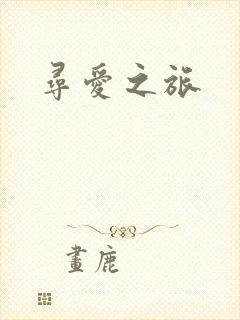 尋愛之旅
畫鹿